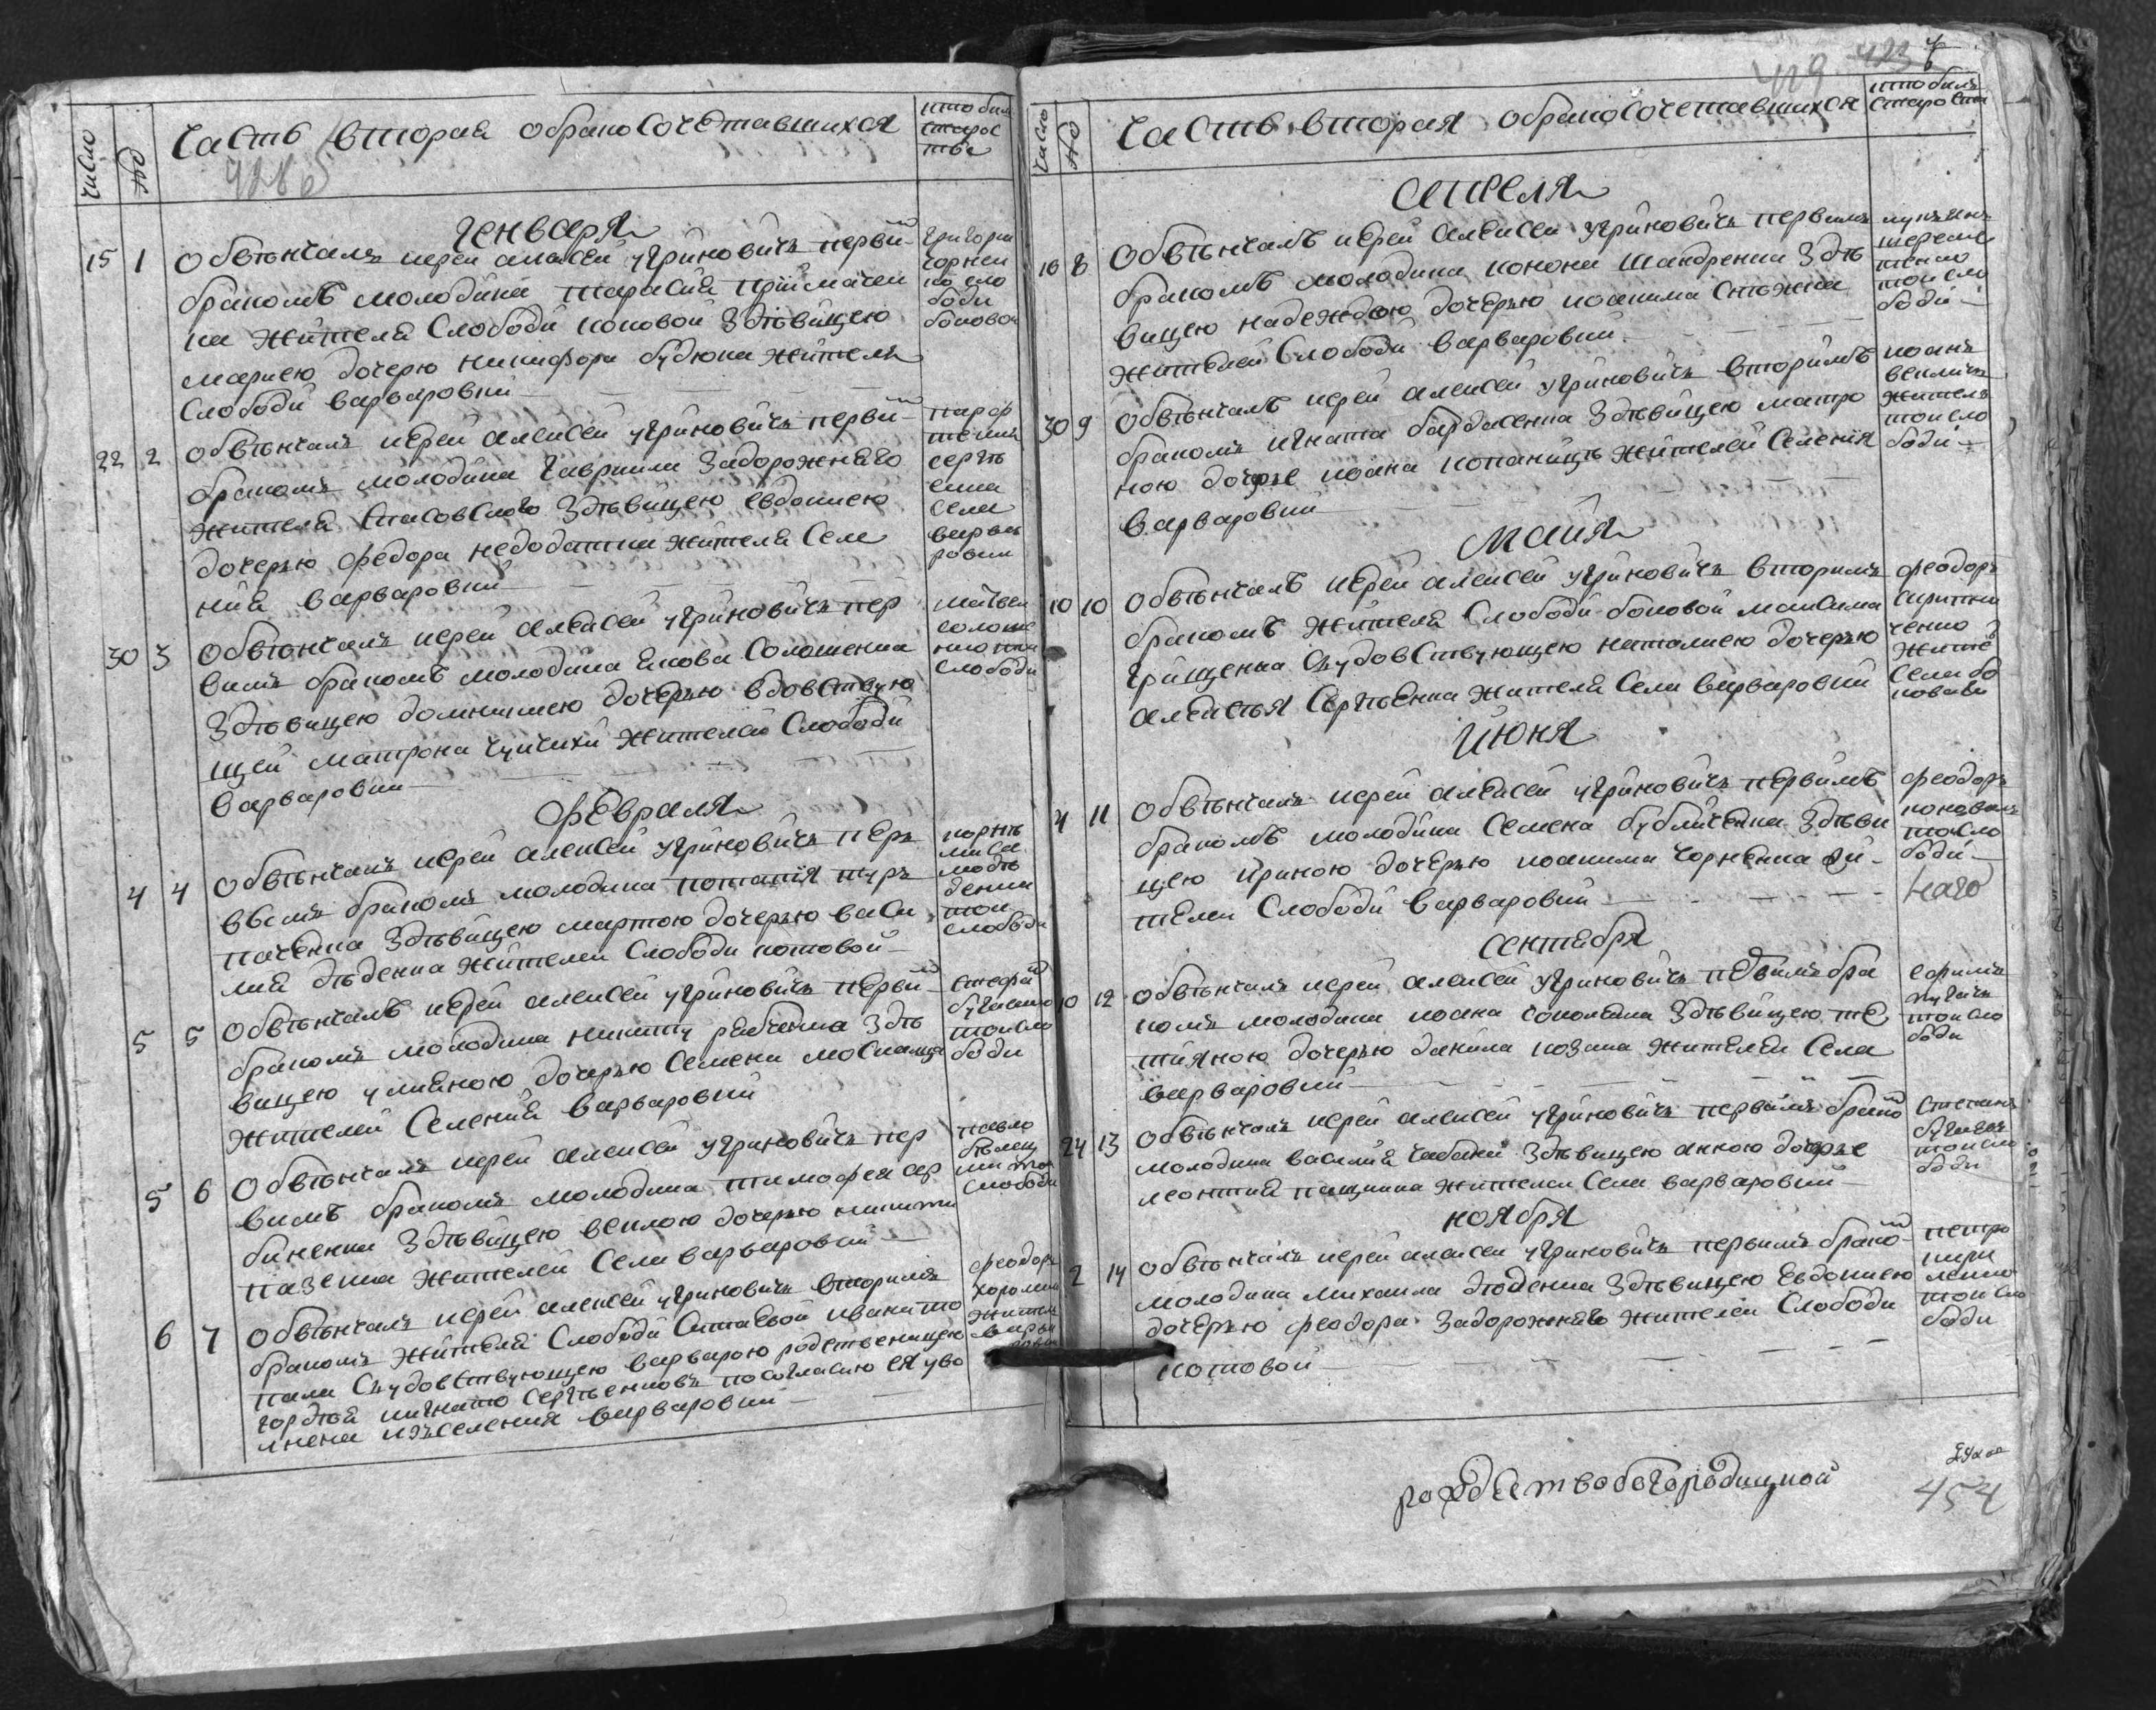 число
№
часть вторая о бракосочетавшихся
кто били
старос
тве
428 б
генваря
15 1 обвѣнчалъ иерей алексей угриновичъ перви
бракомъ молодика тарасия приймачен
ка жителя слободи коповой з дѣвицею
мариею дочерю никифора будюка жителя
слободи варваровки
григори
чорнен
ко сло
боди
боковой
22 2 обвѣнчалъ иерей алексей угриновичъ перви
бракомъ молодика гавриила задорожнаго
жителя спасовского з дѣвицею евдокиею
дочерью федора недодатки жителя селе
ния варваровки
парф
тений
сергѣ
енка
села
варва
ровки
30 3 обвѣнчалъ иерей алексей угриновичъ пер
вимъ бракомъ молодика якова соломенка
з дѣвицею домникиею дочерью вдовствую
щей матрона чуйчихи жителей слободи
варваровки
матвей
соломе
нко той
слободи
февраля
4 4 обвѣнчалъ иерей алексей угриновичъ пер
ввимъ бракомъ молодика потапия тур
паченка з дѣвицею мартою дочерью васи
лия дѣденка жителей слободи котовой
корнѣ
той
слободи
5 5 обвѣнчалъ иерей алексей угриновичъ перви
бракомъ молодика никиту рябченка з дѣ
вицею улияною дочерью семена москаца
жителей селения варваровки
стефа
бугаенко
той сло
боди
5 6 обвѣнчалъ иерей алексей угриновичъ пер
вимъ бракомъ молодика тимофея сер
биненка з дѣвицею веклою дочерью никити
пазенка жителей села варваровки
павло
бѣлец
кий той
слободи
6 7 обвѣнчалъ иерей алексей угриновичъ вторимъ
бракомъ жителя слободи ситаевой ивана то
пали с удовствующею варварою родственницею
гордѣя игнато сергѣенковъ по согласию ея уво
лнена изъ селения варваровки
феодоръ
хороши
жителъ
варва
ровки
число
№
часть вторая о бракосочетавшихся
кто билъ
старости
429 423
апреля
16 8 обвѣнчалъ иерей алексей угриновичъ первимъ
бракомъ молодика конона шандренка з дѣ
вицею надеждою дочерью иоакима стѣжка
жителей слободи варваровки
лукъянъ
шереме
тенко
той сло
боди
30 9 обвѣнчалъ иерей алексей угриновичъ вторимъ
бракомъ игната бардаченка з дѣвицею матро
ною дочерю иоана копаницѣ жителей селения
варваровки
иоанъ
величк
жителъ
той сло
боди
майя
10 10 обвѣнчалъ иерей алексей угриновичъ вторимъ
бракомъ жителя слободи боковой максима
грищенка с удовствующею наталиею дочерью
алексѣя сергѣенка жителя села варваровки
феодоръ
сирит
ченко
жите
села бо
ковой
июня
4 11 обвѣнчалъ иерей алексей угриновичъ первимъ
бракомъ молодика семена бубличенка з дѣви
цею ириною дочерью иоакима чорненка жи
телей слободи варваровки
феодоръ
коновалъ
той сло
боди
сентября
10 12 обвѣнчалъ иерей алексей угриновичъ первимъ бра
комъ молодика иоана соколенка з дѣвицею те
тияною дочерью данила козака жителей села
варваровки
ефимъ
пугачъ
той сло
боди
24 13 обвѣнчалъ иерей алексей угриновичъ первимъ брако
молодика василия чабана з дѣвицею анною дочерю
леонтия пащинка жителей села варваровки
степанъ
бугаенъ
той сло
боди
ноября
2 14 обвѣнчалъ иерей алексей угриновичъ первимъ брако
молодика михаила дѣденка з дѣвицею евдокиею
дочерью феодора задорожнаго жителей слободи
котовой
петро
кири
ленко
той сло
боди
рождествобогородицкой
454